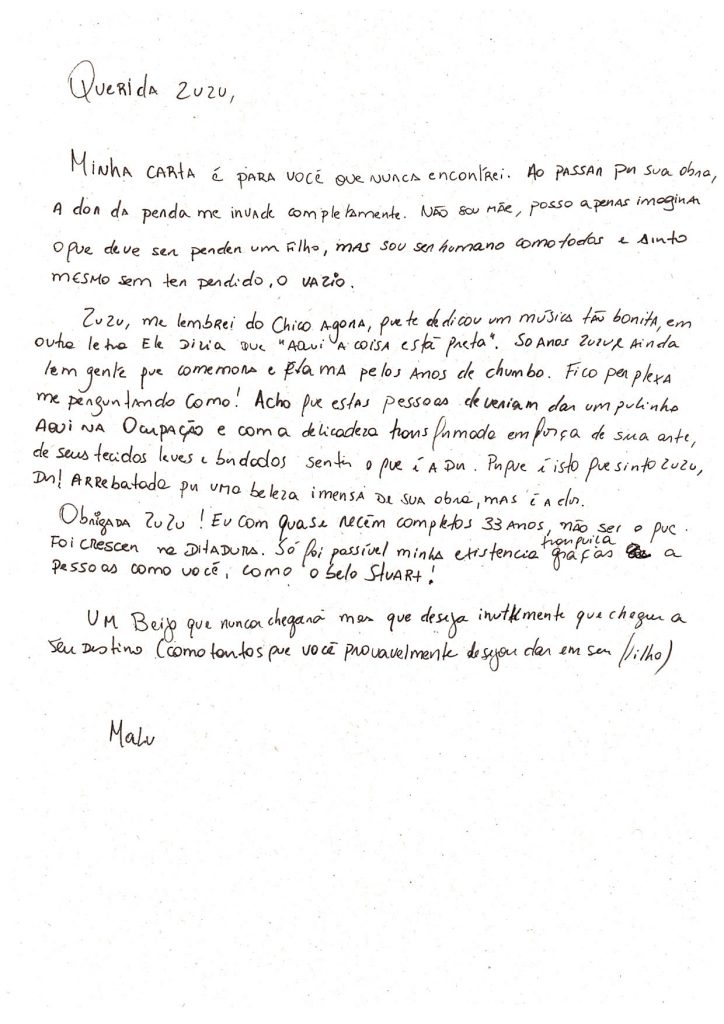 Querida Zuzu,
Minha carta é para você que nunca encontrei. Ao passar por sua obra,
a dor da perda me invade completamente. Não sou mãe, posso apenas imaginar
o que deve ser perder um filho, mas sou ser humano como todos e sinto
mesmo sem ter perdido, o vazio.
Zuzu, me lembrei do Chico agora, que te dedicou um música tão bonita, em
outra letra ele dizia que "aqui a coisa está preta". 50 anos Zuzu e ainda
tem gente que comemora e clama pelos anos de chumbo. Fico perplexa
me perguntando como! Acho que estas pessoas deveriam dar um pulinho
aqui na Ocupação e com a delicadeza transformada em força de sua arte,
de seus tecidos leves e bordados sentir o que é a dor. Porque é isto que sinto Zuzu,
Dor! Arrebatada por uma beleza imensa de sua obra, mas é a dor.
Obrigada Zuzu! Eu com quase recém completos 33 anos, não sei o que
foi crescer na ditadura. Só foi possível minha existencia tranquila graças a
pessoas como você, como o belo Stuart!
Um Beijo que nunca chegará mas que deseja inutilmente que chegue a
seu destino (como tantos que você provavelmente desejou dar em seu filho)
Malu